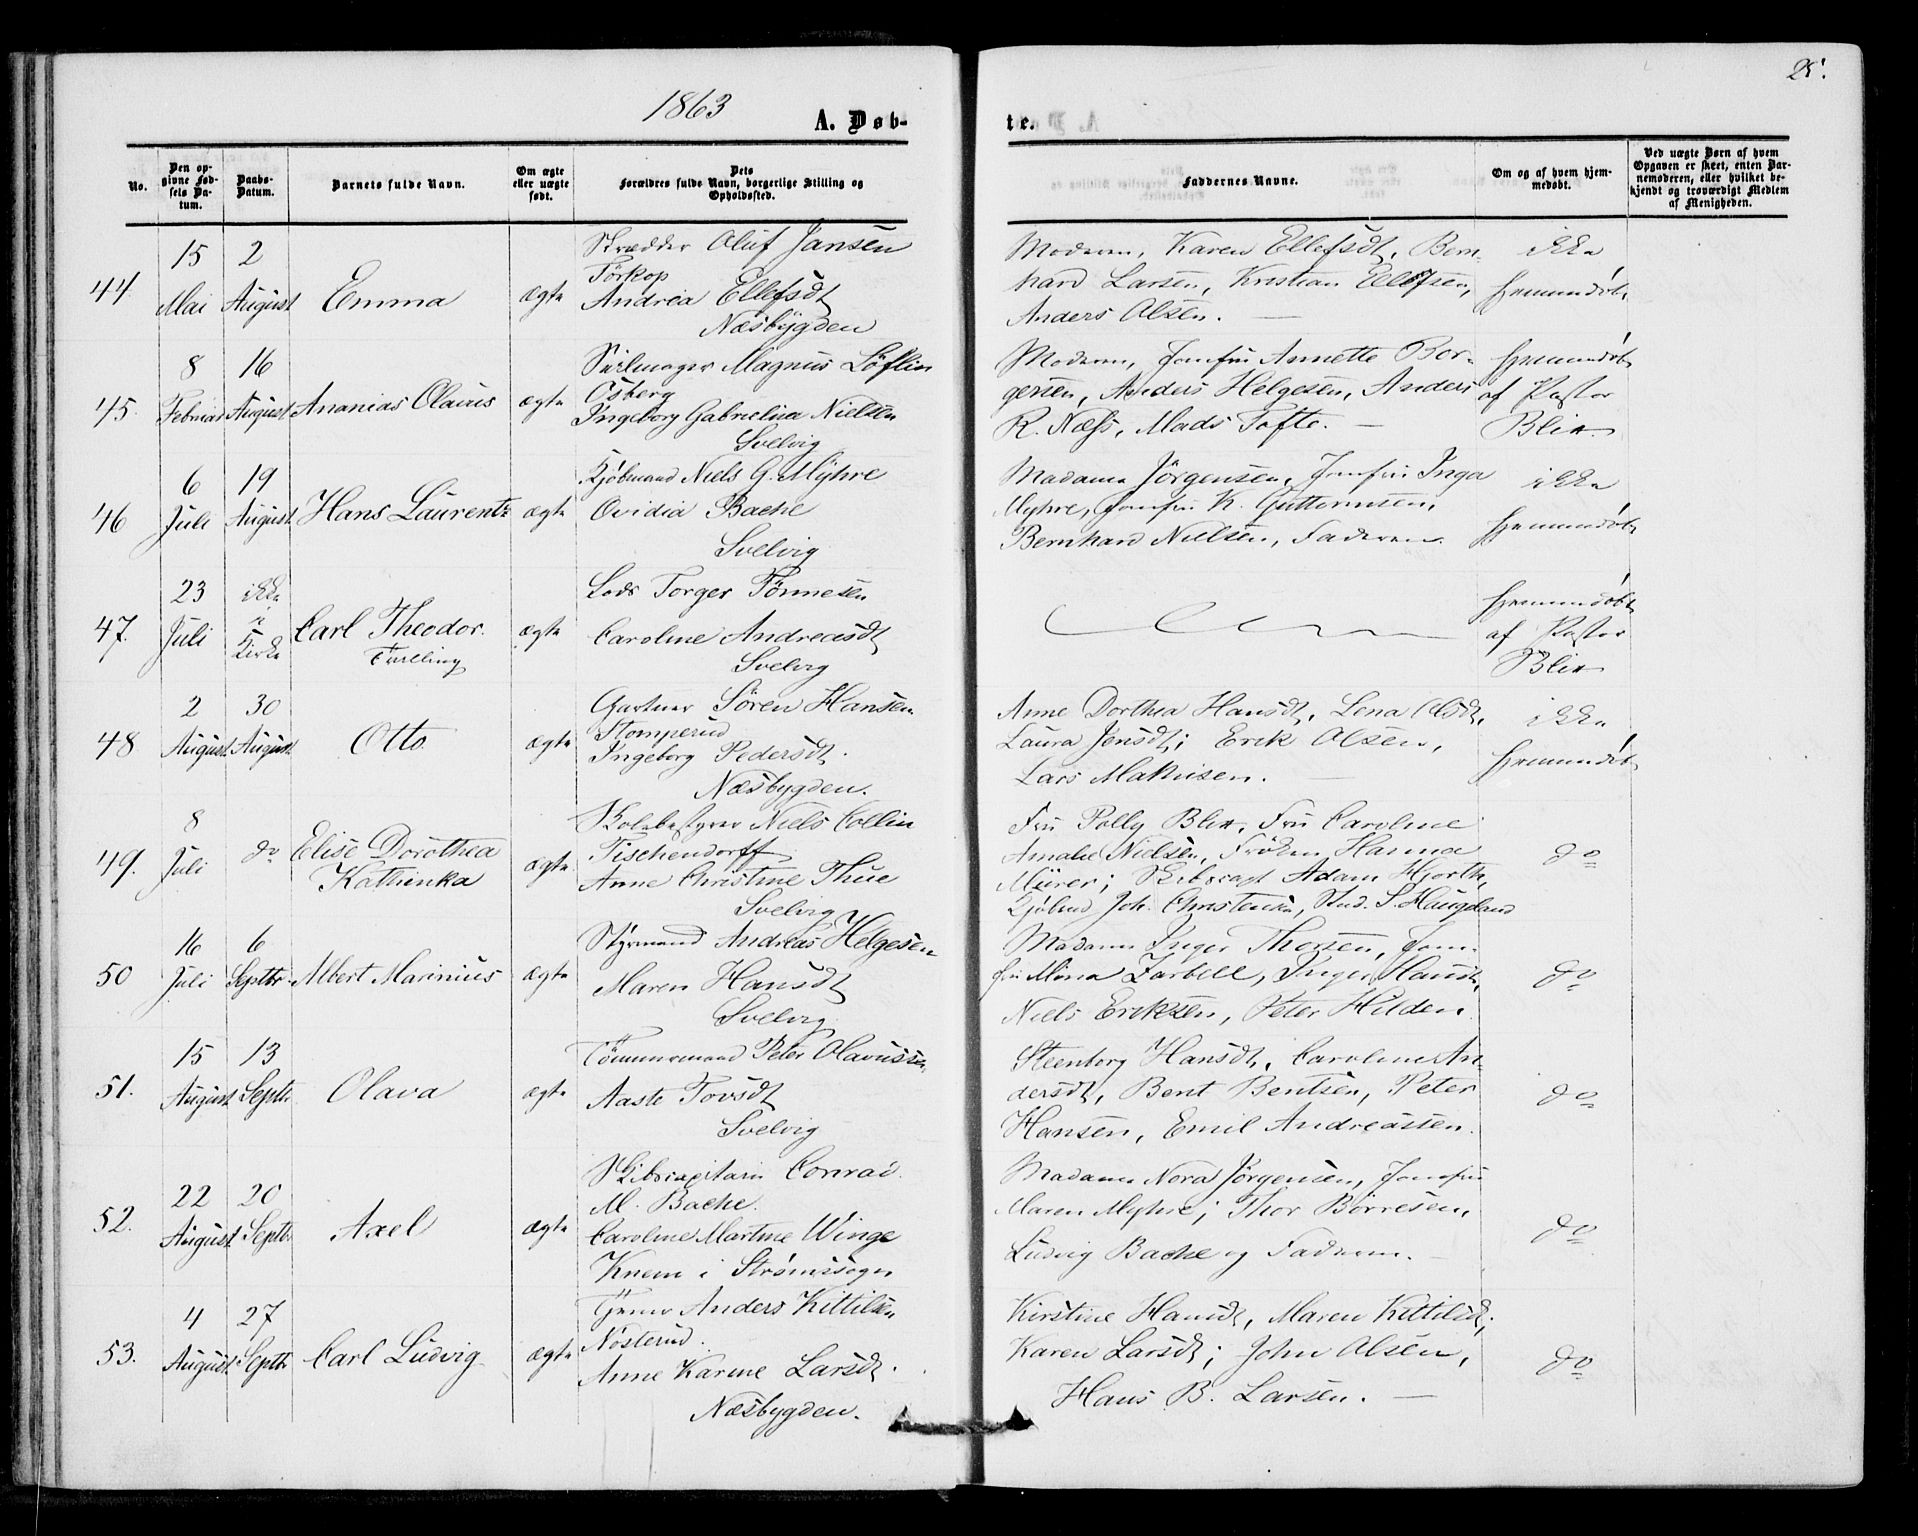 25.
1863
A. Døb-
te.
No.
Den op-
givne Fød-
sels Da-
tum.
Daabs-
Datum.
Barnets fulde Navn.
Om ægte
eller uægte
født.
Dets
Forældres fulde Navn, borgerlige Stilling og
Opholdssted.
Faddernes Navne.
Om og af hvem hjem-
medøbt.
Ved uægte Børn af hvem
Opgaven er skeet, enten Bar-
nemoderen, eller hvilket be-
kjendt og troværdigt Medlem
af Menigheden.
44.
15
Mai
2
August
Emma
ægte
Skrædder Oluf Jansen
Törkop
Andrea Ellefsdt
Næsbygden
Moderen, Karen Ellefsdt, Bern
hard Larsen, Kristian Ellefsen,
Anders Olsen.
ikke
hjemmedøbt
45.
8
Februar
16
August
Ananias Olaius
ægte
Seilmager Magnus Löflin
Osberg
Ingeborg Gabrielina Nielsen
Svelvig
Moderen, Jomfru Annette Bor-
gersen, Anders Helgesen, Anders
R. Næss, Mads Tofte.
hjemmedøbt
af Pastor
Blix
46
6
Juli
19
August
Hans Laurentz
ægte
Kjøbmand Niels G. Myhre
Ovidia Bache
Svelvig
Madame Jörgensen, Jomfru Inga
Myhre, Jomfru K. Guttormsen,
Bernhard Nielsen, Faderen.
ikke
hjemmedøbt
47.
23
Juli
ikke
i
Kirke
Carl Theodor.
Tvilling
ægte
Lods Torger Tönnesen
Caroline Andreasdt
Svelvig
hjemmedøbt
af Pastor
Blix
48
2
August
30
August
Otto
ægte
Gartner Sören Hansen
Stomperud
Ingeborg Pedersdt.
Næsbygden.
Anne Dorthea Hansdt, Lena Olsdt,
Laura Jensdt; Erik Olsen,
Lars Mathisen.
ikke
hjemmedøbt
49.
8
Juli
do
Elise Dorothea
Kathinka
ægte
Skolebestyrer Niels Collin
Tischendorff
Anne Christine Thue
Svelvig
Fru Polly Blix, Fru Caroline
Amalie Nielsen, Frøken Hanna
Mürer; Skibscapt Adam Hjorth,
Kjøbmd Joh. Christensen, Stud. S. Haugeland
do
50
16
Juli
6
Septbr
Albert Marinius
ægte
Styrmand Andreas Helgesen
Maren Hansdt
Svelvig
Madame Inger Thorsen, Jom-
fru Mina Zarbell, Inger Hansdt,
Niels Eriksen, Peter Hilden.
do
51.
15
August
13
Septbr
Olava
ægte
Tömmermand Peter Olavussen
Aaste Tovsdt
Svelvig
Steenborg Hansdt, Caroline An-
dersdt, Bent Bentsen, Peter
Hansen, Emil Andreassen.
do
52.
22
August
20
Septbr
Axel
ægte
Skibscapitain Conrad
M. Bache.
Caroline Martine Winge
Knem i Strømssogn
Madame Nora Jörgensen, Jomfru
Maren Myhre; Thor Börresen,
Ludvig Bache og Faderen.
do
53.
4
August
27
Septbr
Carl Ludvig
ægte
Anders Kittilsen
Nösterud.
Anne Karine Larsdt.
Næsbygden.
Kirstine Hansdt, Maren Kittilsdt,
Karen Larsdt; John Olsen,
Hans B. Larsen.
do